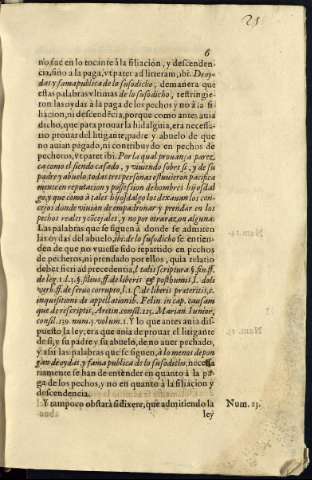 23
6
no fue en lo tocante à la filiación, y descenden-
cia, sino a la paga, vt patet ad litteram, ibi: De oy-
das y fama publica de lo susodicho, de manera que
estas palabras vltimas de lo susodicho, restringie-
ron las oydas à la paga de los pechos y no à la fi-
liacion, ni descendēcia, porque como antes auia
dicho, que para prouar la hidalguia, era necessa-
rio prouar del litigante, padre y abuelo de que
no auian pegado, ni contribuydo en pechos de
pecheros, vt patet ibi: Por la qual prouança parez-
ca como el siendo casado, y viuiendo sobre si, y de su
padre y abuelo, todas tres personas estuuieron pacifica
mente en reputation y possession de hombres hijosdal
go, y que como à tales hijosdalgo los dexauan los con-
cejos donde viuian de empadronar y prendar en los
pechos reales y cōcejales, y no por otra razon alguna:
Las palabras que se siguen à donde se admiten
las oydas del abuelo, ibi: de lo susodicho se entien-
den de que no vuesse sido repartido en pechos
de pecheros, ni prendado por ellos, quia relatio
debet fieri ad precedentia, l. talis scriptura §. fin. ff.
de leg. 1. d. l. §. filius, ff. de liberis & posthumis l. doli
verb. ff. de seruo corrupto, l. 1. ff. de liberis preteritis,
inquisitioni de appellationib. Felin. in cap. causam
que de rescriptis, Aretin. consil. 125. Marian. Iunior,
consil. 159. num. 5. volum. 1. Y lo que antes auia dis-
puesto la ley, era que auia de prouar el litigante
de si, y su padre y su abuelo, de no auer pechado,
y assi las palabras que se siguen, à lo menos depon
gan de oydas, y fama publica de lo susodicho, necessa
riamente se han de entender en quanto à la pa-
ga de los pechos, y no en quanto à la filiacion y
descendencia.
Y tampoco obstarà si dixere, que admitiendo la Num. 23.
ley